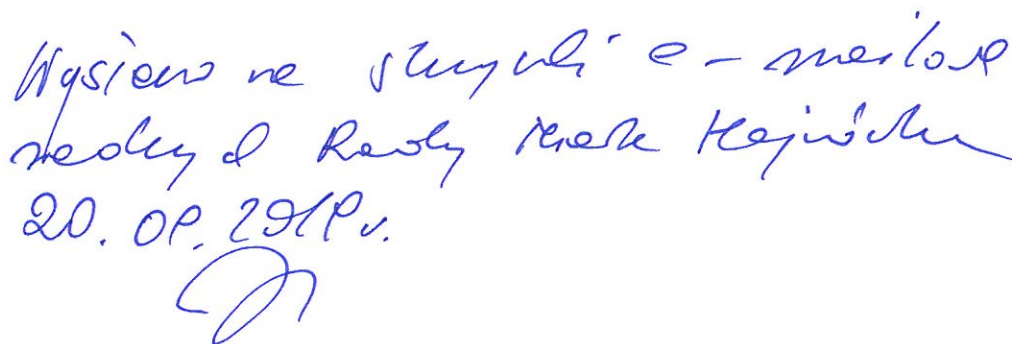 Wysłano na skrynki e-mailowe
radnych Rady Miasta Hajnówka
20.08.2018 r.